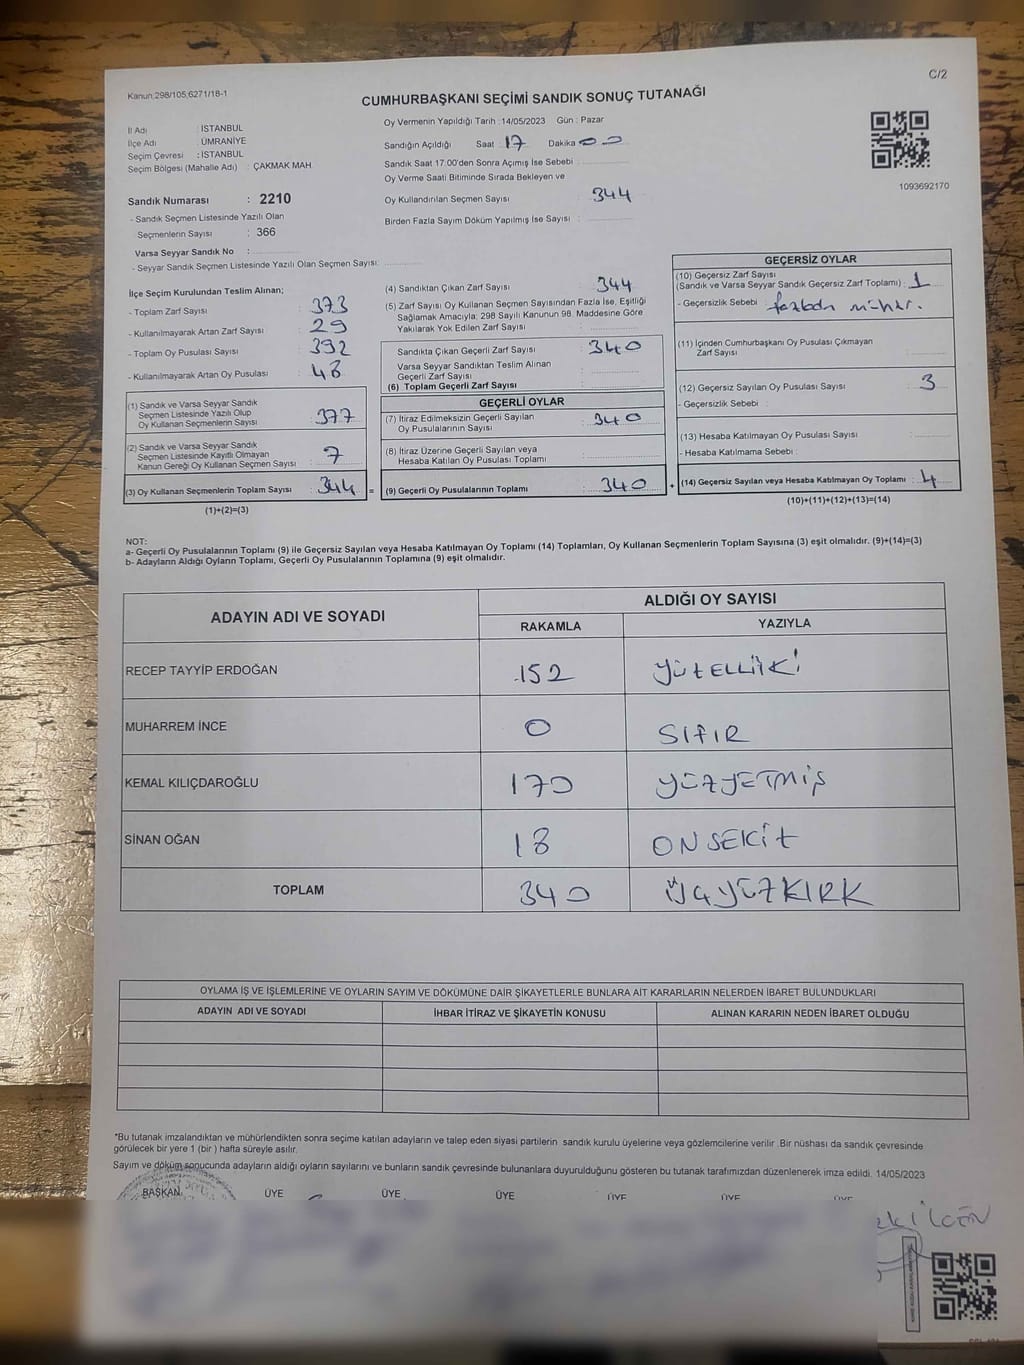 C/2
Kanun;298/105,6271/18-1
CUMHURBAŞKANI SEÇİMİ SANDIK SONUÇ TUTANAĞI
İl Adı : İSTANBUL
İlçe Adı : ÜMRANİYE
Seçim Çevresi : İSTANBUL
Seçim Bölgesi (Mahalle Adı) : ÇAKMAK MAH
Sandık Numarası : 2210
- Sandık Seçmen Listesinde Yazılı Olan
Seçmenlerin Sayısı : 366
Varsa Seyyar Sandık No :
- Seyyar Sandık Seçmen Listesinde Yazılı Olan Seçmen Sayısı:
Oy Vermenin Yapıldığı Tarih :14/05/2023 Gün : Pazar
Sandığın Açıldığı Saat 17 Dakika 00
Sandık Saat 17:00'den Sonra Açılmış İse Sebebi :
Oy Verme Saati Bitiminde Sırada Bekleyen ve
Oy Kullandırılan Seçmen Sayısı : 344
Birden Fazla Sayım Döküm Yapılmış İse Sayısı :
1093692170
İlçe Seçim Kurulundan Teslim Alınan;
- Toplam Zarf Sayısı : 373
- Kullanılmayarak Artan Zarf Sayısı : 29
- Toplam Oy Pusulası Sayısı : 392
- Kullanılmayarak Artan Oy Pusulası : 48
(1) Sandık ve Varsa Seyyar Sandık
Seçmen Listesinde Yazılı Olup
Oy Kullanan Seçmenlerin Sayısı : 377
(2) Sandık ve Varsa Seyyar Sandık
Seçmen Listesinde Kayıtlı Olmayan
Kanun Gereği Oy Kullanan Seçmen Sayısı : 7
(3) Oy Kullanan Seçmenlerin Toplam Sayısı : 344 =
(1)+(2)=(3)
(4) Sandıktan Çıkan Zarf Sayısı : 344
(5) Zarf Sayısı Oy Kullanan Seçmen Sayısından Fazla İse, Eşitliği
Sağlamak Amacıyla; 298 Sayılı Kanunun 98. Maddesine Göre
Yakılarak Yok Edilen Zarf Sayısı :
Sandıkta Çıkan Geçerli Zarf Sayısı : 340
Varsa Seyyar Sandıktan Teslim Alınan
Geçerli Zarf Sayısı :
(6) Toplam Geçerli Zarf Sayısı :
GEÇERLİ OYLAR
(7) İtiraz Edilmeksizin Geçerli Sayılan
Oy Pusulalarının Sayısı : 340
(8) İtiraz Üzerine Geçerli Sayılan veya
Hesaba Katılan Oy Pusulası Toplamı :
(9) Geçerli Oy Pusulalarının Toplamı : 340 +
GEÇERSİZ OYLAR
(10) Geçersiz Zarf Sayısı
(Sandık ve Varsa Seyyar Sandık Geçersiz Zarf Toplamı) : 1
- Geçersizlik Sebebi : fazladan mühür.
(11) İçinden Cumhurbaşkanı Oy Pusulası Çıkmayan
Zarf Sayısı :
(12) Geçersiz Sayılan Oy Pusulası Sayısı : 3
- Geçersizlik Sebebi :
(13) Hesaba Katılmayan Oy Pusulası Sayısı :
- Hesaba Katılmama Sebebi :
(14) Geçersiz Sayılan veya Hesaba Katılmayan Oy Toplamı : 4
(10)+(11)+(12)+(13)=(14)
NOT:
a- Geçerli Oy Pusulalarının Toplamı (9) ile Geçersiz Sayılan veya Hesaba Katılmayan Oy Toplamı (14) Toplamları, Oy Kullanan Seçmenlerin Toplam Sayısına (3) eşit olmalıdır. (9)+(14)=(3)
b- Adayların Aldığı Oyların Toplamı, Geçerli Oy Pusulalarının Toplamına (9) eşit olmalıdır.
ADAYIN ADI VE SOYADI
ALDIĞI OY SAYISI
RAKAMLA YAZIYLA
RECEP TAYYİP ERDOĞAN 152 YÜZELLİİKİ
MUHARREM İNCE 0 SIFIR
KEMAL KILIÇDAROĞLU 170 YÜZYETMİŞ
SİNAN OĞAN 18 ONSEKİZ
TOPLAM 340 ÜÇYÜZKIRK
OYLAMA İŞ VE İŞLEMLERİNE VE OYLARIN SAYIM VE DÖKÜMÜNE DAİR ŞİKAYETLERLE BUNLARA AİT KARARLARIN NELERDEN İBARET BULUNDUKLARI
ADAYIN ADI VE SOYADI İHBAR İTİRAZ VE ŞİKAYETİN KONUSU ALINAN KARARIN NEDEN İBARET OLDUĞU
*Bu tutanak imzalandıktan ve mühürlendikten sonra seçime katılan adayların ve talep eden siyasi partilerin sandık kurulu üyelerine veya gözlemcilerine verilir .Bir nüshası da sandık çevresinde
görülecek bir yere 1 (bir ) hafta süreyle asılır.
Sayım ve döküm sonucunda adayların aldığı oyların sayılarını ve bunların sandık çevresinde bulunanlara duyurulduğunu gösteren bu tutanak tarafımızdan düzenlenerek imza edildi. 14/05/2023
BAŞKAN ÜYE ÜYE ÜYE ÜYE ÜYE ÜYE